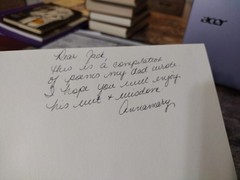 Dear Jack,
This is a compilation
of poems my dad wrote
I hope you will enjoy
his wit + wisdom
Annamary
acer